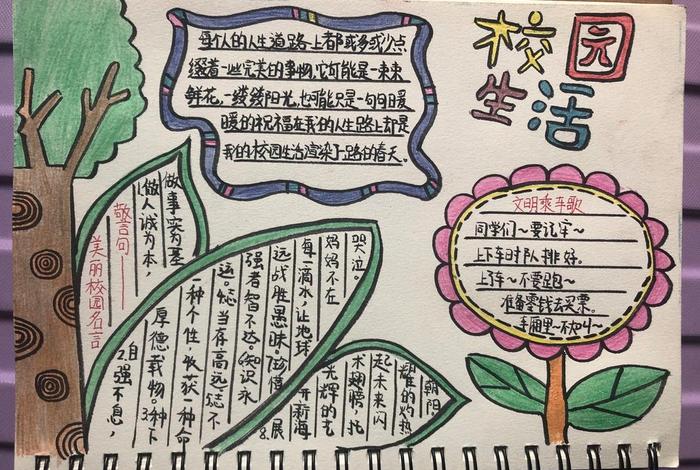 校园
生活
每个人的人生道路上都或多或少点
缀着一些完美的事物,它可能是一束束
鲜花,一缕缕阳光,也可能只是一句句暖
暖的祝福在我的人生路上却是
我的校园生活渲染了一路的春天。
文明乘车歌
同学们~要记牢~
上下车时队排好。
上车~不要跑~
准备零钱去买票。
车厢里~不大叫~
美丽校园名言
警言句
做事实为基
做人诚为本,
2.自强不息,
厚德载物。3.种下
一种个性,收获一种命
运。志当存高远。志不
强者智不达。知识永
远战胜愚昧。珍惜
每一滴水,让地球
妈妈不在
哭泣。
8.展
开新海
光辉的
术翅膀,托
起未来闪
耀的灼热
朝阳